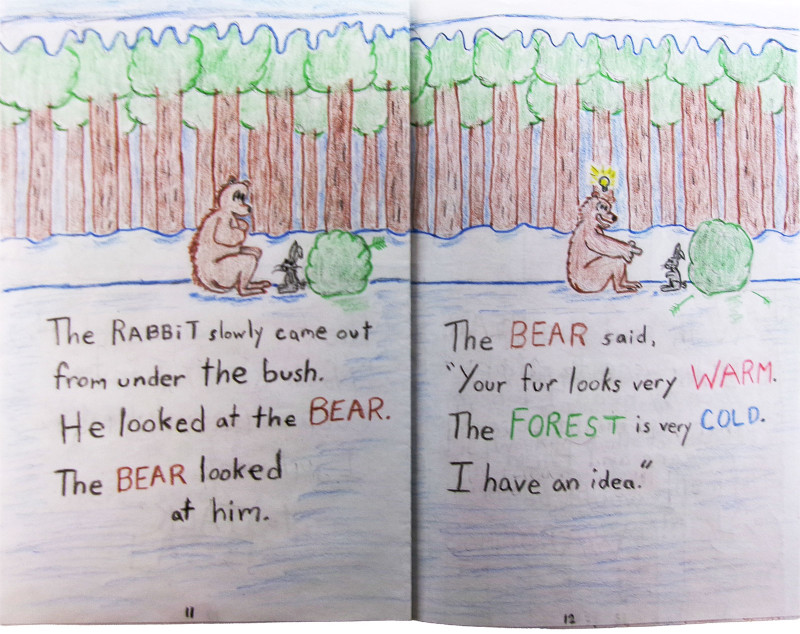 The RABBiT slowly came out
from under the bush.
He looked at the BEAR.
The BEAR looked
at him.
11
The BEAR said,
"Your fur looks very WARM.
The FOREST is very COLD.
I have an idea."
12